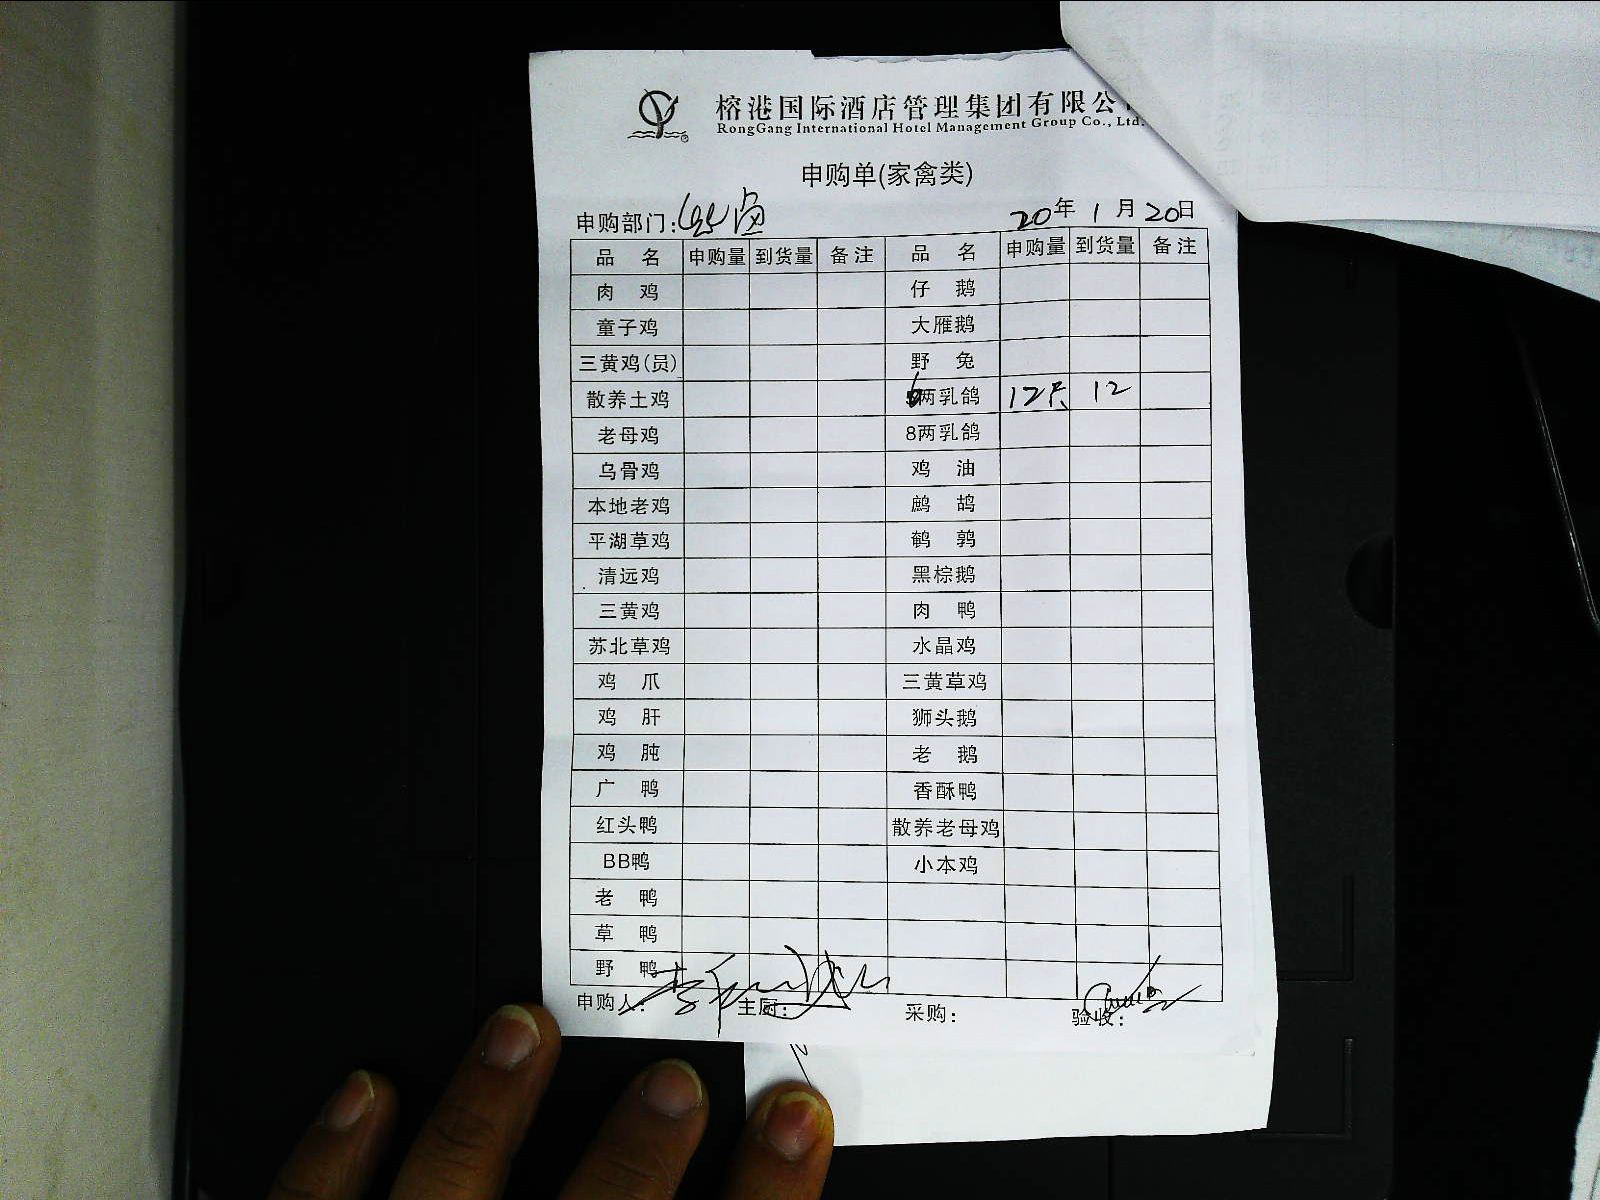 榕港国际酒店管理集团有限公
RongGang International Hotel Management Group Co., Ltd.
申购单(家禽类)
申购部门: 20年 1月 20日
品 名 申购量 到货量 备注 品 名 申购量 到货量 备注
肉 鸡 仔 鹅
童子鸡 大雁鹅
三黄鸡(员) 野 兔
散养土鸡 6两乳鸽 12只 12
老母鸡 8两乳鸽
乌骨鸡 鸡 油
本地老鸡 鹧 鸪
平湖草鸡 鹌 鹑
清远鸡 黑棕鹅
三黄鸡 肉 鸭
苏北草鸡 水晶鸡
鸡 爪 三黄草鸡
鸡 肝 狮头鹅
鸡 肫 老 鹅
广 鸭 香酥鸭
红头鸭 散养老母鸡
BB鸭 小本鸡
老 鸭
草 鸭
野 鸭
申购人: 主厨: 采购: 验收: